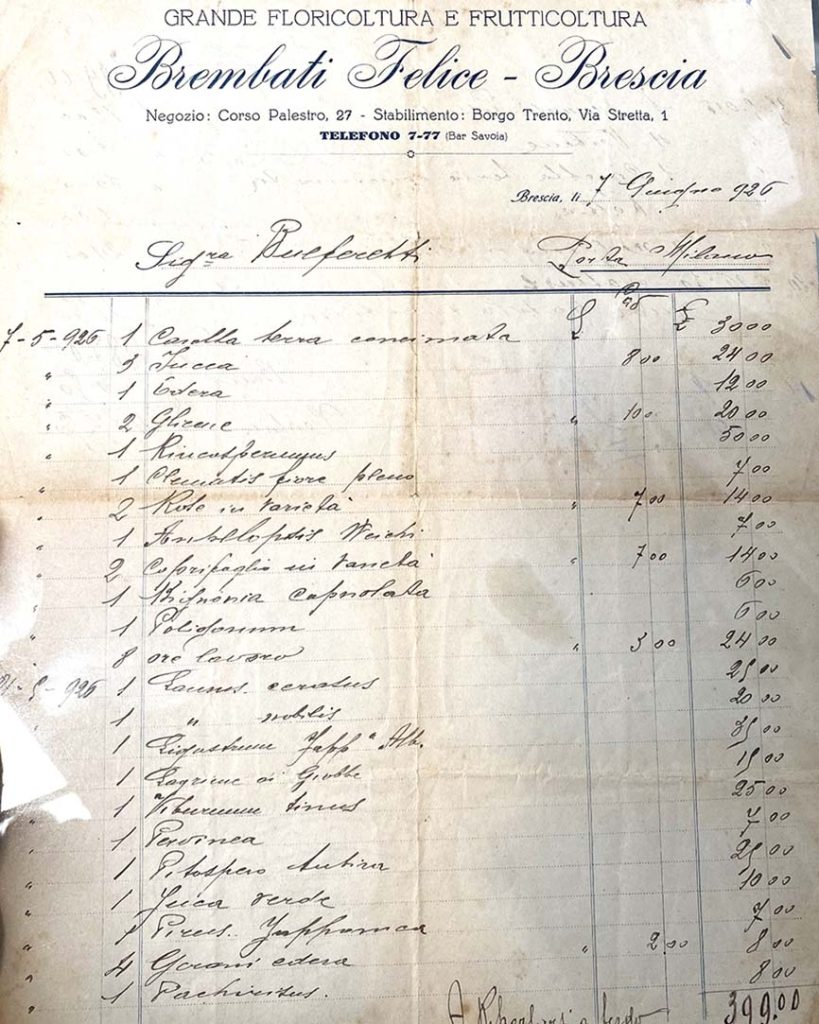 GRANDE FLORICOLTURA E FRUTTICOLTURA
Brembati Felice - Brescia
Negozio: Corso Palestro, 27 - Stabilimento: Borgo Trento, Via Stretta, 1
TELEFONO 7-77 (Bar Savoia)
Brescia, li 7 Giugno 926
Sigra Porta Milano
7-5-926 1 terra concimata £ £ 30 00
" 3 Jucca 8 00 24 00
" 1 Edera 12 00
" 2 Glicine " 10 0 20 00
" 1 Rincospermus 50 00
" 1 Clematis fiore pleno 7 00
" 2 Rose in varietà " 7 00 14 00
" 1 Weichi 7 00
" 2 Caprifoglio in varietà " 7 00 14 00
" 1 Bignonia 6 00
" 1 6 00
8 ore lavoro " 3 00 24 00
926 1 Laurus ceratus 25 00
1 " nobilis 20 00
" 1 Ligustrum Japp. 35 00
" 1 Lagrime di Giobbe 15 00
" 1 Viburnum tinus 25 00
" 1 Pervinca 7 00
" 1 Pitospero 25 00
" 1 Juca verde 10 00
" 1 Pirus Japponica 7 00
" 4 Gerani edera " 2 00 8 00
" 1 8 00
399.00